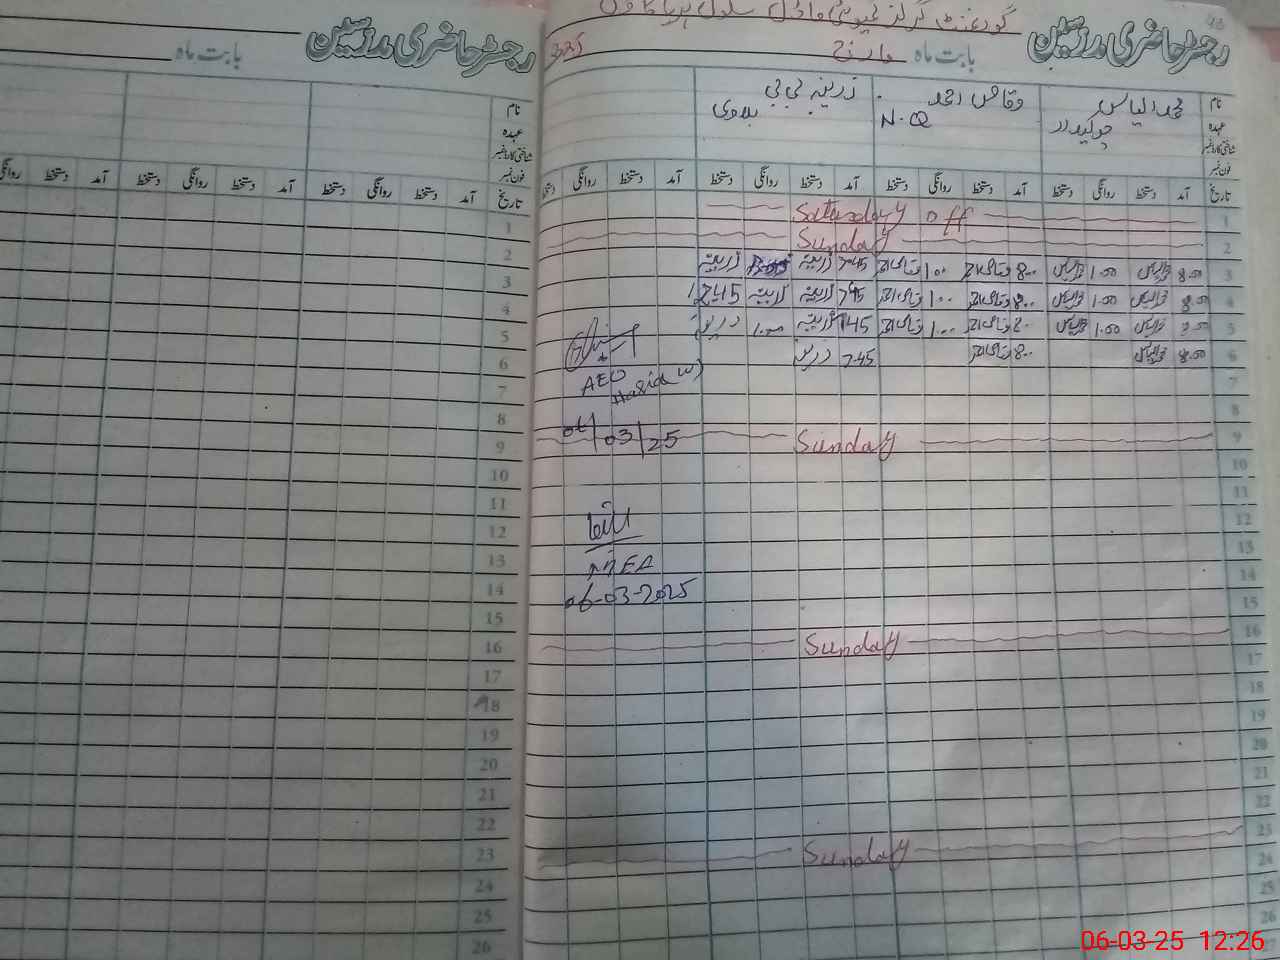 گورنمنٹ گرلز کمیونٹی ماڈل سکول
رجسٹر حاضری مدرسین
بابت ماہ مارچ 2025
نام
عہدہ
شناختی کارڈ نمبر
فون نمبر
محمد الیاس
چوکیدار
وقاص احمد
N.Q
زرینہ بی بی
تاریخ آمد دستخط روانگی دستخط آمد دستخط روانگی دستخط آمد دستخط روانگی دستخط آمد دستخط روانگی دستخط
1 Saturday off
2 Sunday
3 8.00 محمد الیاس 1.00 محمد الیاس 8.00 وقاص احمد 1.00 وقاص احمد 7.45 زرینہ زرینہ
4 8.00 محمد الیاس 1.00 محمد الیاس 8.00 وقاص احمد 1.00 وقاص احمد 7.45 زرینہ زرینہ 1245
5 8.00 محمد الیاس 1.00 محمد الیاس 8.00 وقاص احمد 1.00 وقاص احمد 7.45 زرینہ 1.00 زرینہ
6 8.00 محمد الیاس 8.00 وقاص احمد 7.45 زرینہ
7
AEO
8
06/03/25
9 Sunday
10
11
12
13
MEA
14
06-03-2025
15
16 Sunday
17
18
19
20
21
22
23 Sunday
24
25
26
رجسٹر حاضری مدرسین
بابت ماہ
نام
عہدہ
شناختی کارڈ نمبر
فون نمبر
تاریخ آمد دستخط روانگی دستخط آمد دستخط روانگی دستخط آمد دستخط روانگی
1
2
3
4
5
6
7
8
9
10
11
12
13
14
15
16
17
18
19
20
21
22
23
24
25
26
06-03-25 12:26